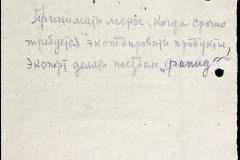 Принимать меры: когда срочно
требуется экспедировать продукты,
экспорт делать поездом „рапид“.